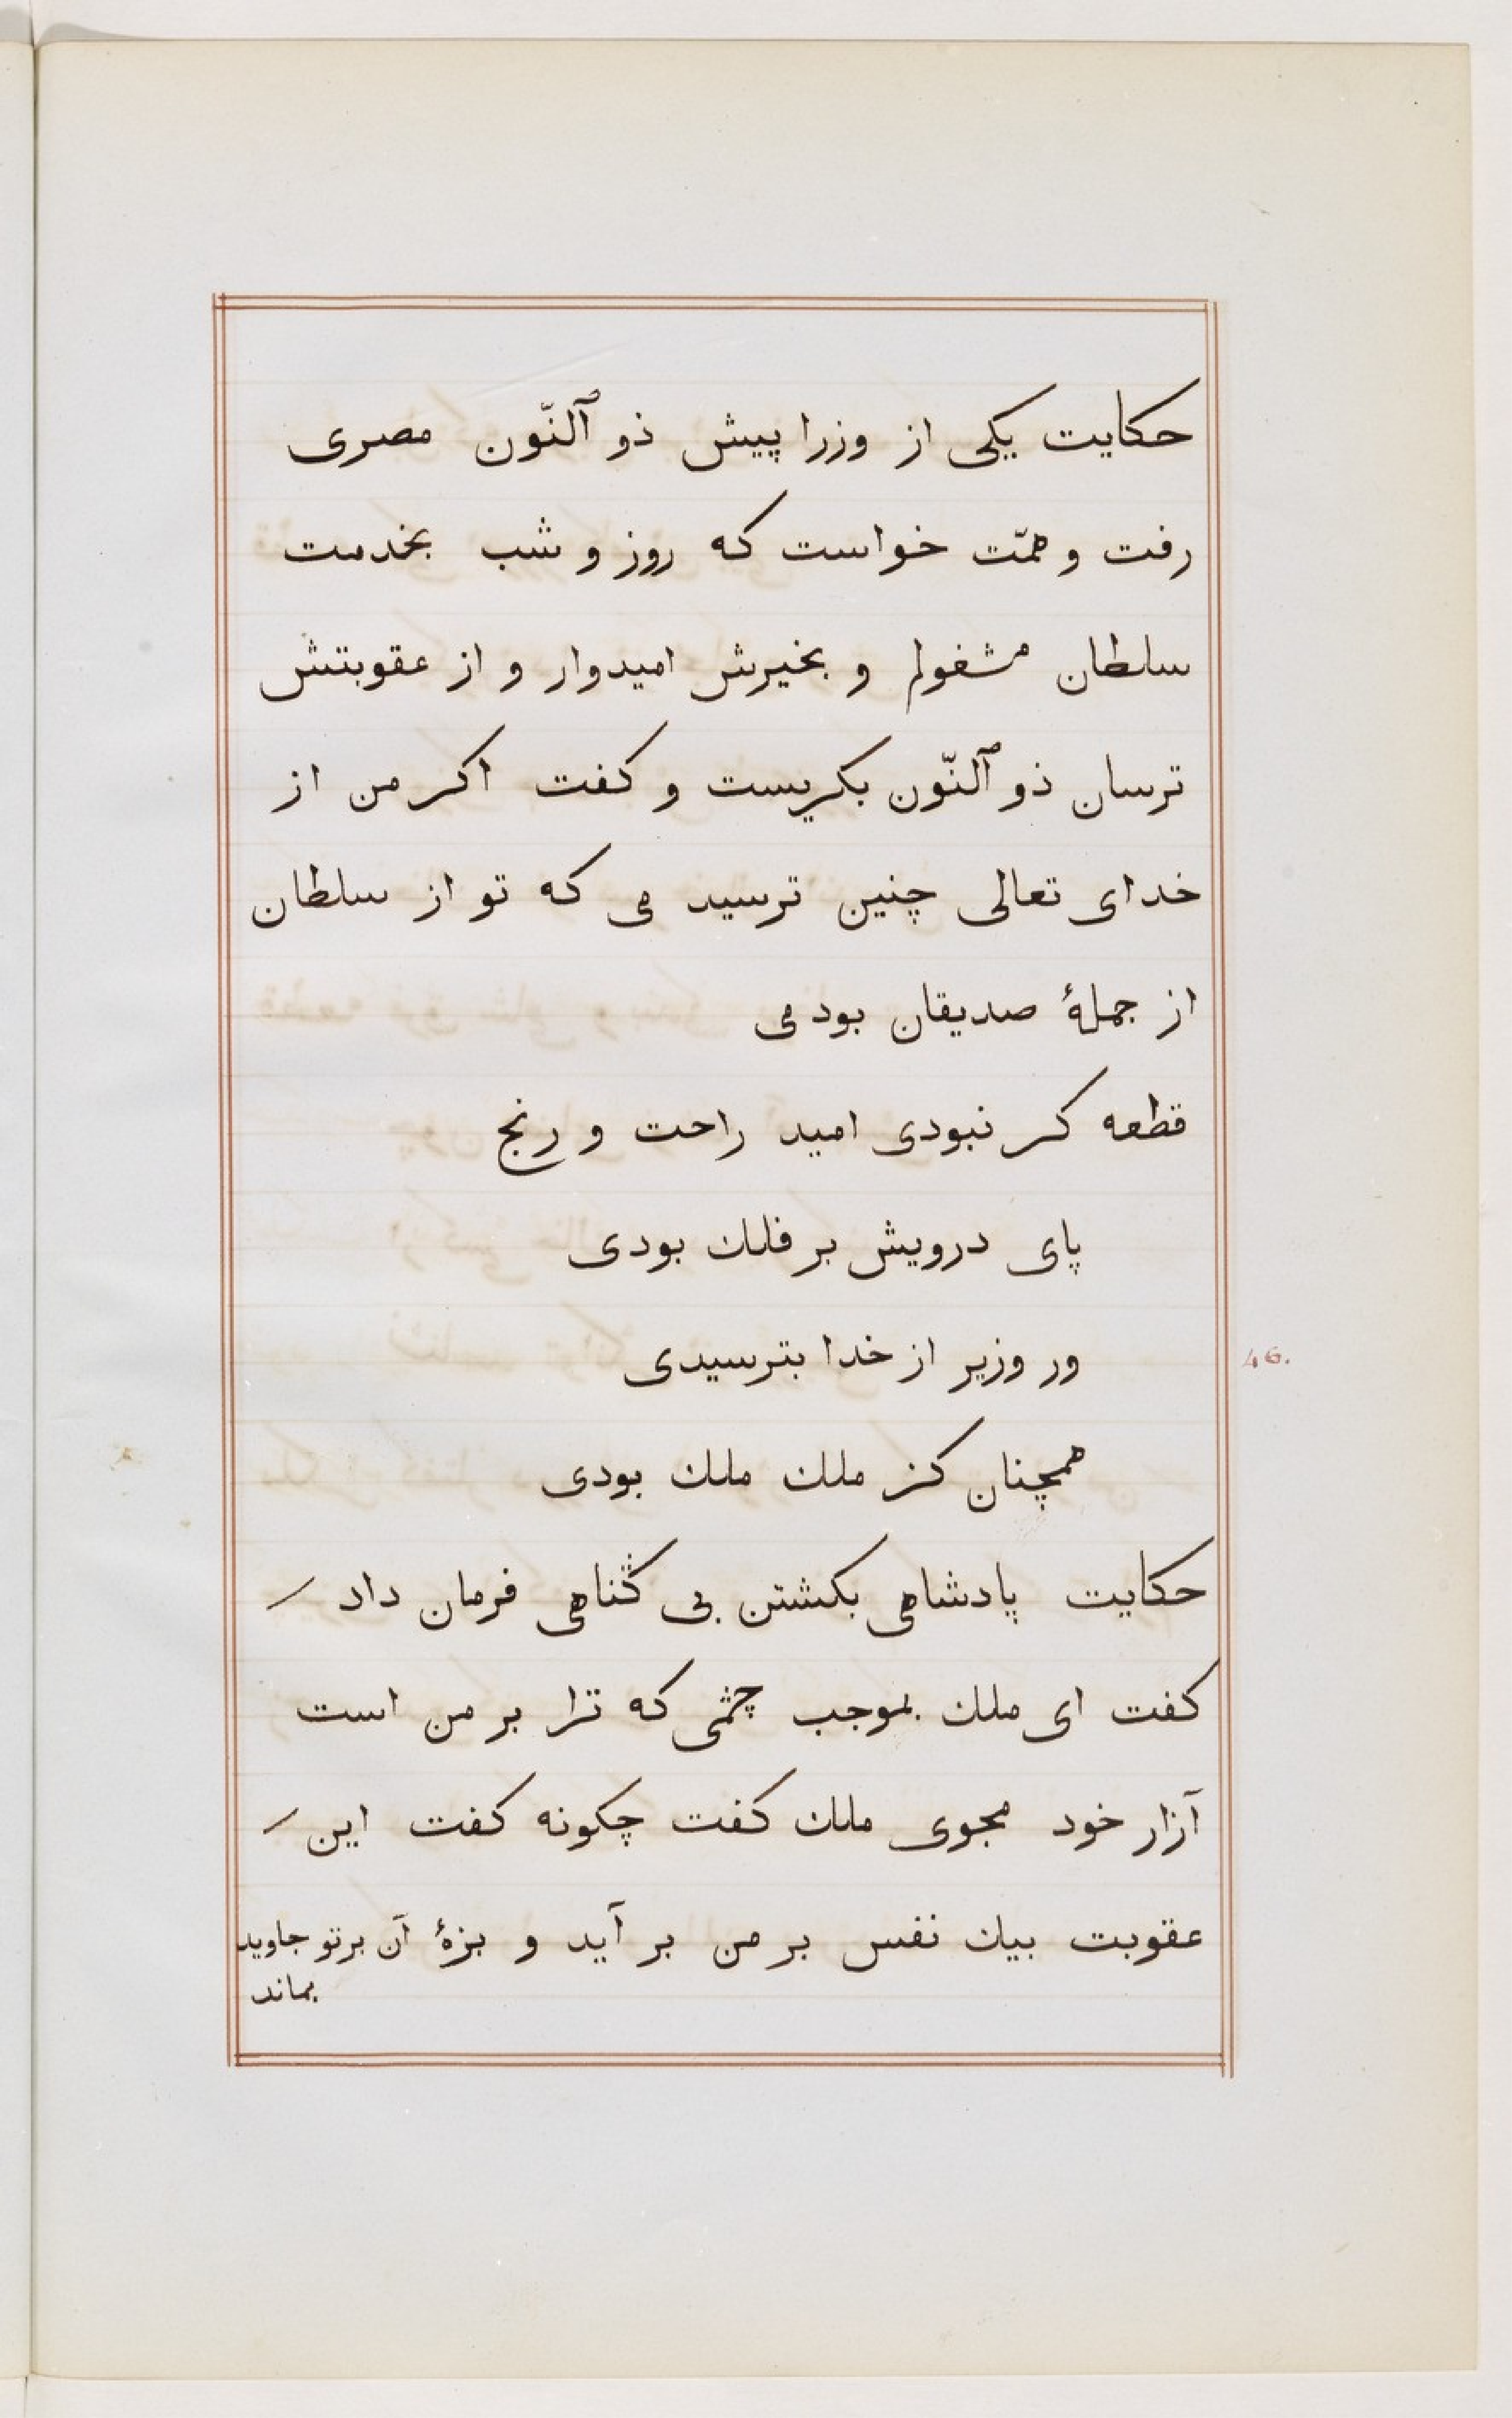 حکایت یکی از وزرا پیش ذو ٱلنّون مصری
رفت و همّت خواست که روز و شب بخدمت
سلطان مشغولم و بخیرش امیدوار و از عقوبتش
ترسان ذو ٱلنّون بکریست و کفت اکر من از
خدای تعالی چنین ترسید می که تو از سلطان
از جملۀ صدیقان بودمی
قطعه کر نبودی امید راحت و رنج
پای درویش بر فلك بودی
ور وزیر از خدا بترسیدی
46.
همچنان کز ملك ملك بودی
حکایت پادشاهی بکشتن بی کناهی فرمان داد
کفت ای ملك بموجب چشمی که ترا بر من است
آزار خود مجوی ملك کفت چکونه کفت این
عقوبت بیك نفس بر من بر آید و بزۀ آن بر تو جاوید
بماند